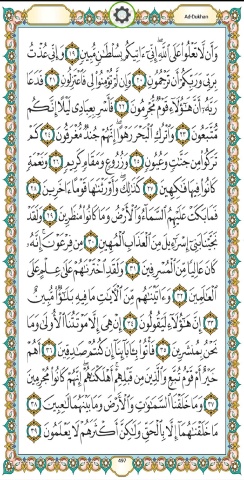 Ad-Dukhan
وَأَن لَّا تَعْلُوا۟ عَلَى ٱللَّهِ إِنِّىٓ ءَاتِيكُم بِسُلْطَٰنٍ مُّبِينٍ ١٩ وَإِنِّى عُذْتُ
بِرَبِّى وَرَبِّكُمْ أَن تَرْجُمُونِ ٢٠ وَإِن لَّمْ تُؤْمِنُوا۟ لِى فَٱعْتَزِلُونِ ٢١ فَدَعَا
رَبَّهُۥٓ أَنَّ هَٰٓؤُلَآءِ قَوْمٌ مُّجْرِمُونَ ٢٢ فَأَسْرِ بِعِبَادِى لَيْلًا إِنَّكُم
مُّتَّبَعُونَ ٢٣ وَٱتْرُكِ ٱلْبَحْرَ رَهْوًا إِنَّهُمْ جُندٌ مُّغْرَقُونَ ٢٤ كَمْ
تَرَكُوا۟ مِن جَنَّٰتٍ وَعُيُونٍ ٢٥ وَزُرُوعٍ وَمَقَامٍ كَرِيمٍ ٢٦ وَنَعْمَةٍ
كَانُوا۟ فِيهَا فَٰكِهِينَ ٢٧ كَذَٰلِكَ وَأَوْرَثْنَٰهَا قَوْمًا ءَاخَرِينَ ٢٨
فَمَا بَكَتْ عَلَيْهِمُ ٱلسَّمَآءُ وَٱلْأَرْضُ وَمَا كَانُوا۟ مُنظَرِينَ ٢٩ وَلَقَدْ
نَجَّيْنَا بَنِىٓ إِسْرَٰٓءِيلَ مِنَ ٱلْعَذَابِ ٱلْمُهِينِ ٣٠ مِن فِرْعَوْنَ إِنَّهُۥ
كَانَ عَالِيًا مِّنَ ٱلْمُسْرِفِينَ ٣١ وَلَقَدِ ٱخْتَرْنَٰهُمْ عَلَىٰ عِلْمٍ عَلَى
ٱلْعَٰلَمِينَ ٣٢ وَءَاتَيْنَٰهُم مِّنَ ٱلْءَايَٰتِ مَا فِيهِ بَلَٰٓؤٌا۟ مُّبِينٌ
٣٣ إِنَّ هَٰٓؤُلَآءِ لَيَقُولُونَ ٣٤ إِنْ هِىَ إِلَّا مَوْتَتُنَا ٱلْأُولَىٰ وَمَا
نَحْنُ بِمُنشَرِينَ ٣٥ فَأْتُوا۟ بِـَٔابَآئِنَآ إِن كُنتُمْ صَٰدِقِينَ ٣٦ أَهُمْ
خَيْرٌ أَمْ قَوْمُ تُبَّعٍ وَٱلَّذِينَ مِن قَبْلِهِمْ أَهْلَكْنَٰهُمْ إِنَّهُمْ كَانُوا۟ مُجْرِمِينَ
٣٧ وَمَا خَلَقْنَا ٱلسَّمَٰوَٰتِ وَٱلْأَرْضَ وَمَا بَيْنَهُمَا لَٰعِبِينَ ٣٨
مَا خَلَقْنَٰهُمَآ إِلَّا بِٱلْحَقِّ وَلَٰكِنَّ أَكْثَرَهُمْ لَا يَعْلَمُونَ ٣٩
497